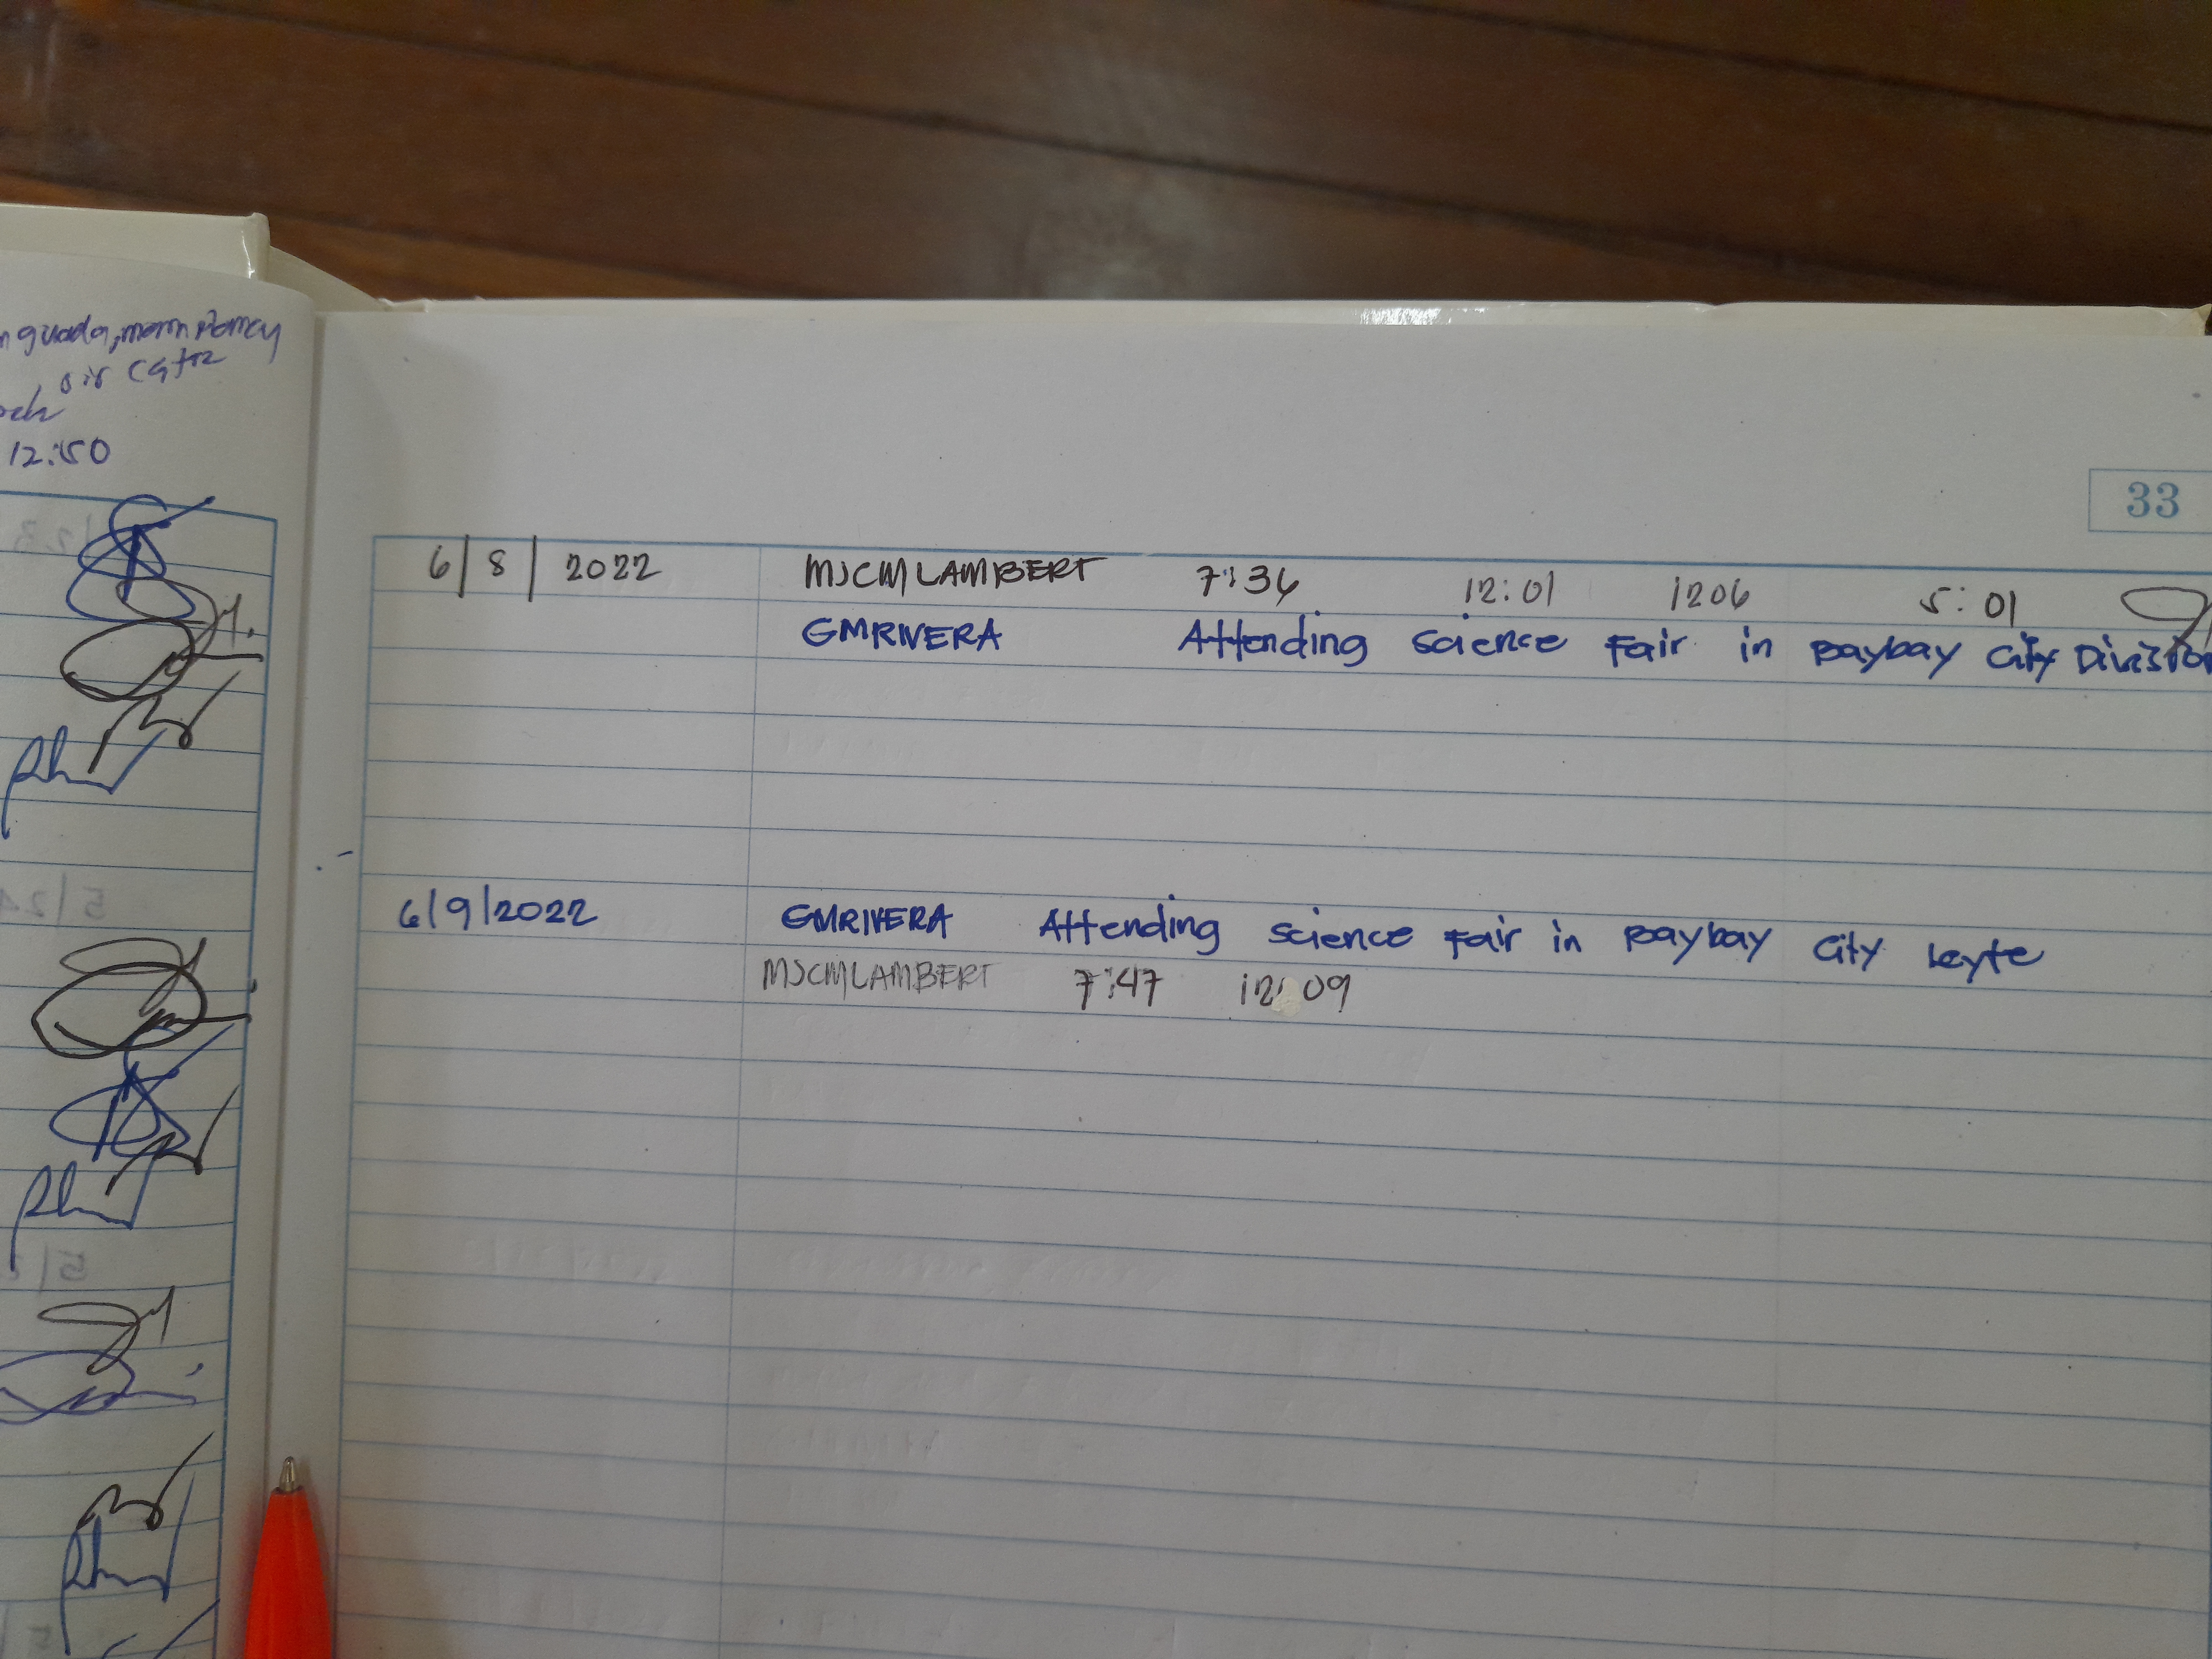 sir
12:50
33
6/8/2022 MJCMLAMBERT 7:36 12:01 1206 5:01
GMRIVERA Attending science Fair in Baybay City Division
6/9/2022 GMRIVERA Attending science Fair in Baybay City Leyte
MJCMLAMBERT 7:47 12:09